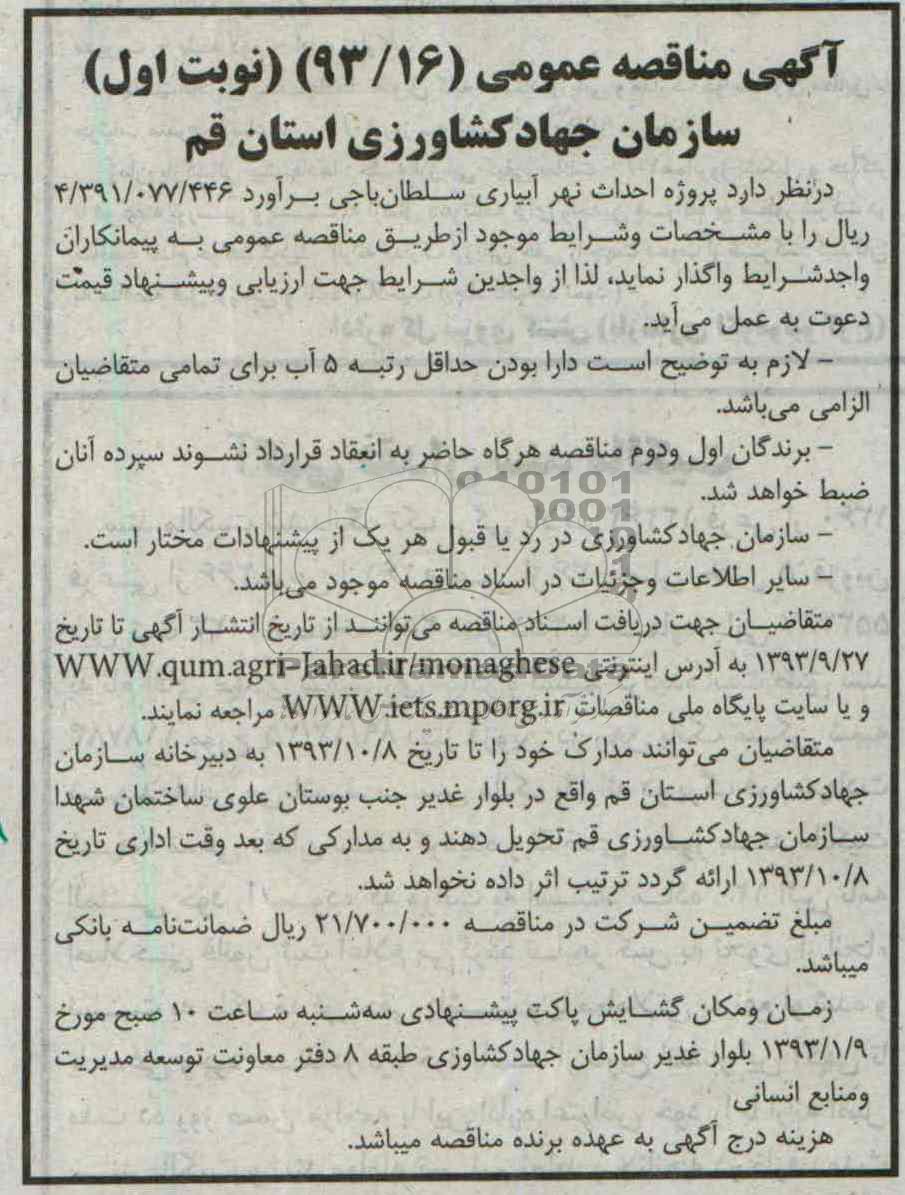 آگهی مناقصه عمومی (۹۳/۱۶) (نوبت اول)
سازمان جهادکشاورزی استان قم
درنظر دارد پروژه احداث نهر آبیاری سلطان‌باجی برآورد ۴/۳۹۱/۰۷۷/۴۴۶
ریال را با مشخصات وشرایط موجود ازطریق مناقصه عمومی به پیمانکاران
واجدشرایط واگذار نماید، لذا از واجدین شرایط جهت ارزیابی وپیشنهاد قیمت
دعوت به عمل می‌آید.
– لازم به توضیح است دارا بودن حداقل رتبه ۵ آب برای تمامی متقاضیان
الزامی می‌باشد.
– برندگان اول ودوم مناقصه هرگاه حاضر به انعقاد قرارداد نشوند سپرده آنان
ضبط خواهد شد.
– سازمان جهادکشاورزی در رد یا قبول هر یک از پیشنهادات مختار است.
– سایر اطلاعات وجزئیات در اسناد مناقصه موجود می‌باشد.
متقاضیان جهت دریافت اسناد مناقصه می‌توانند از تاریخ انتشار آگهی تا تاریخ
۱۳۹۳/۹/۲۷ به آدرس اینترنتی WWW.qum.agri-Jahad.ir/monaghese
و یا سایت پایگاه ملی مناقصات WWW.iets.mporg.ir مراجعه نمایند.
متقاضیان می‌توانند مدارک خود را تا تاریخ ۱۳۹۳/۱۰/۸ به دبیرخانه سازمان
جهادکشاورزی استان قم واقع در بلوار غدیر جنب بوستان علوی ساختمان شهدا
سازمان جهادکشاورزی قم تحویل دهند و به مدارکی که بعد وقت اداری تاریخ
۱۳۹۳/۱۰/۸ ارائه گردد ترتیب اثر داده نخواهد شد.
مبلغ تضمین شرکت در مناقصه ۲۱/۷۰۰/۰۰۰ ریال ضمانت‌نامه بانکی
میباشد.
زمان ومکان گشایش پاکت پیشنهادی سه‌شنبه ساعت ۱۰ صبح مورخ
۱۳۹۳/۱/۹ بلوار غدیر سازمان جهادکشاوزی طبقه ۸ دفتر معاونت توسعه مدیریت
ومنابع انسانی
هزینه درج آگهی به عهده برنده مناقصه میباشد.